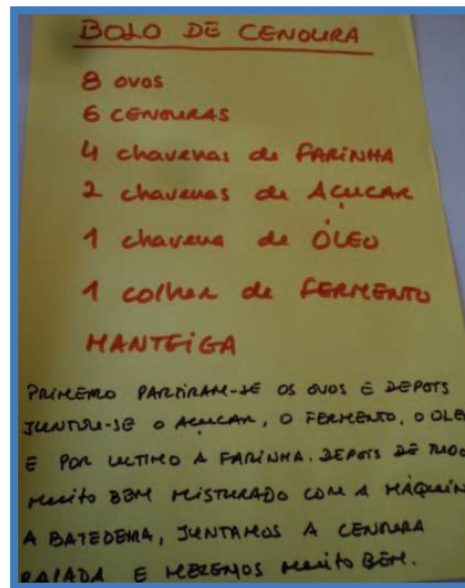 BOLO DE CENOURA
8 ovos
6 CENOURAS
4 chavenas de FARINHA
2 chavenas de AÇUCAR
1 chavena de ÓLEO
1 colher de FERMENTO
MANTEIGA
PRIMEIRO PARTIRAM-SE OS OVOS E DEPOIS
JUNTOU-SE O AÇUCAR, O FERMENTO, O OLEO
E POR ULTIMO A FARINHA. DEPOIS DE TUDO
MUITO BEM MISTURADO COM A MÁQUINA
A BATEDEIRA, JUNTAMOS A CENOURA
RALADA E MEXEMOS MUITO BEM.